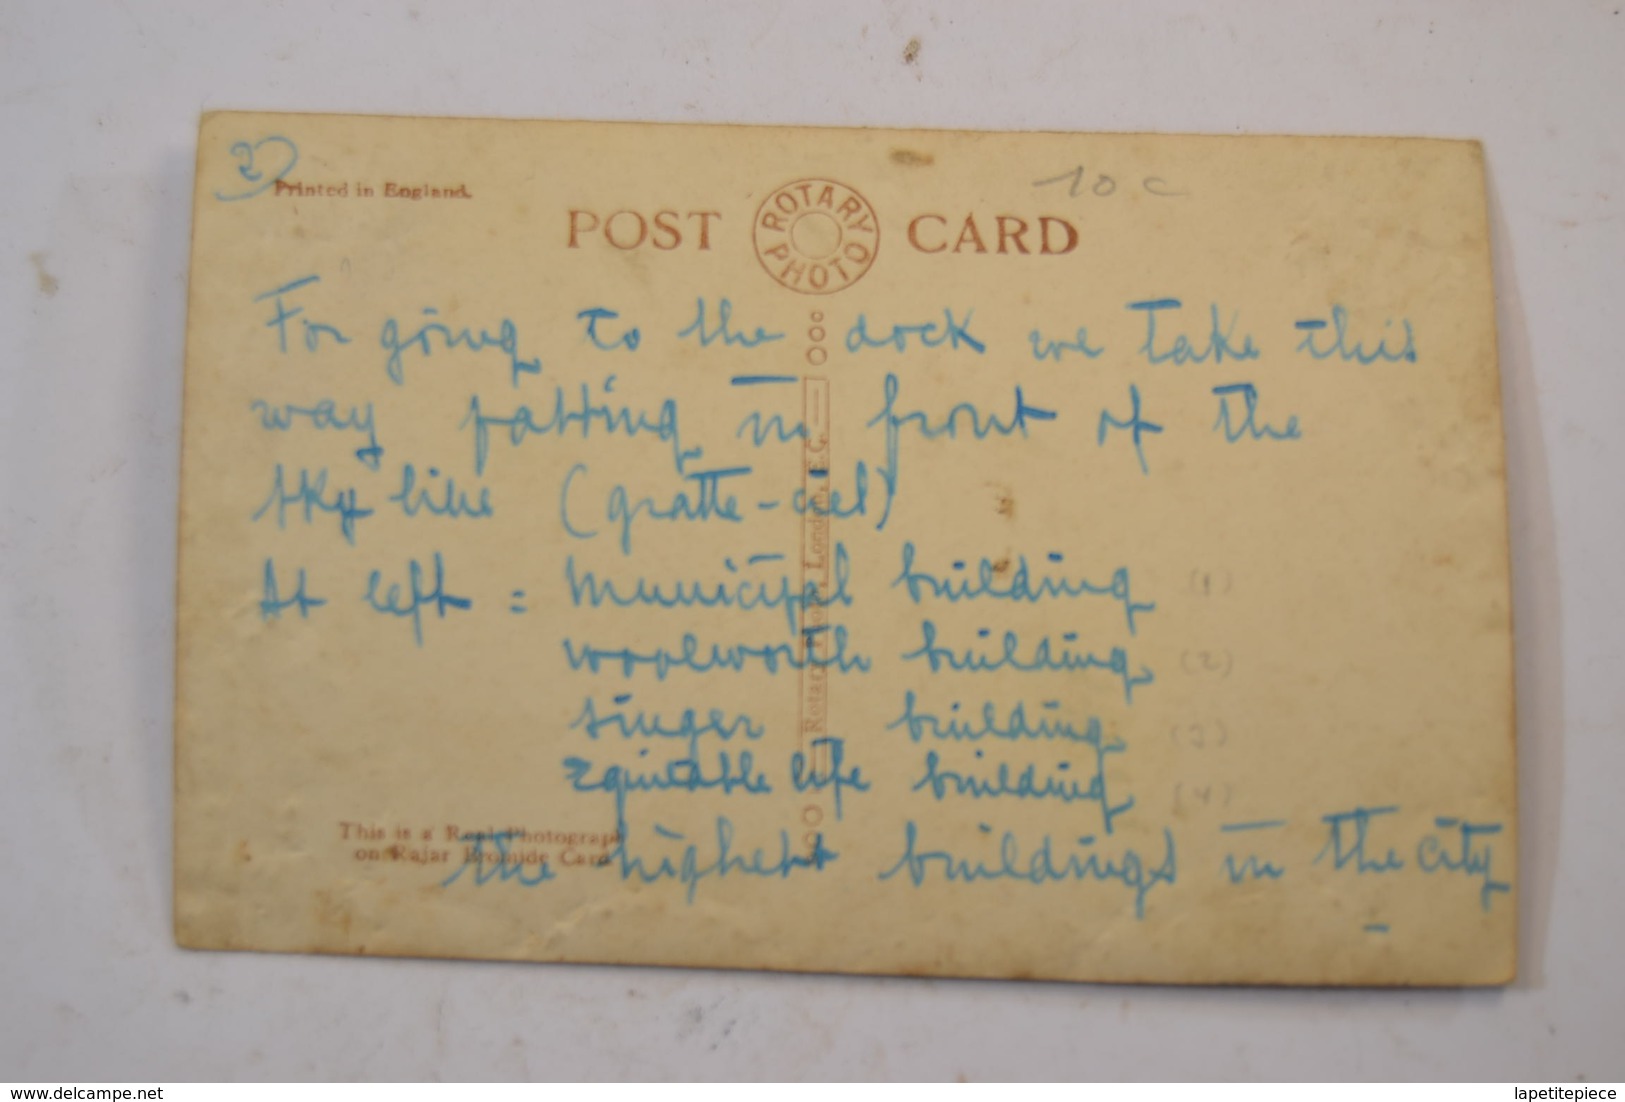 2)
Printed in England.
10 c
POST ROTARY PHOTO CARD
For going to the dock we take this
way passing in front of the
sky line (gratte-ciel)
At left = Municipal building (1)
woolworth building (2)
singer building (3)
Equitable life building (4)
the highest buildings in the city
Rotary Photo, London, E.C.
This is a Real Photograph
on Rajar Bromide Card
delcampe.net
lapetitepiece